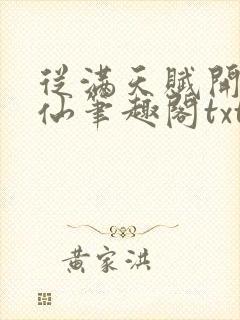 從滿天賦開
仙筆趣閣txt
黃家洪